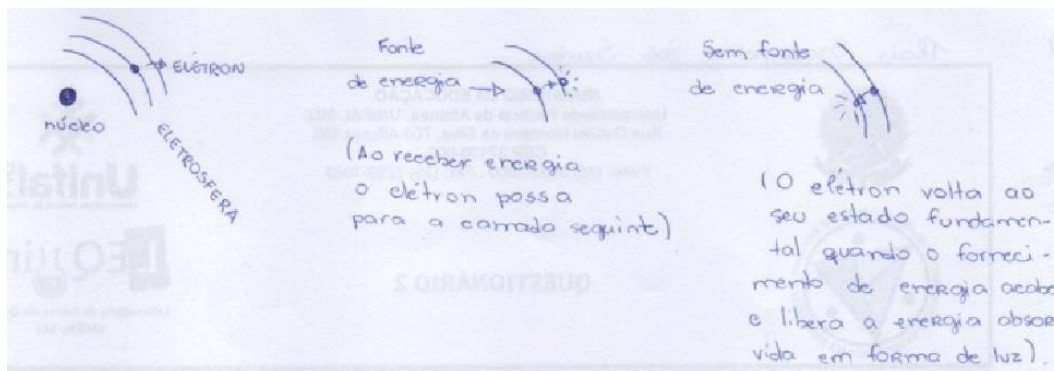 ELÉTRON
núcleo
ELETROSFERA
Fonte
de energia
(Ao receber energia
o elétron possa
para a camada seguinte)
Sem fonte
de energia
(O elétron volta ao
seu estado fundamen-
tal quando o forneci-
mento de energia acaba
e libera a energia absor
vida em forma de luz).
QUESTIONÁRIO 2